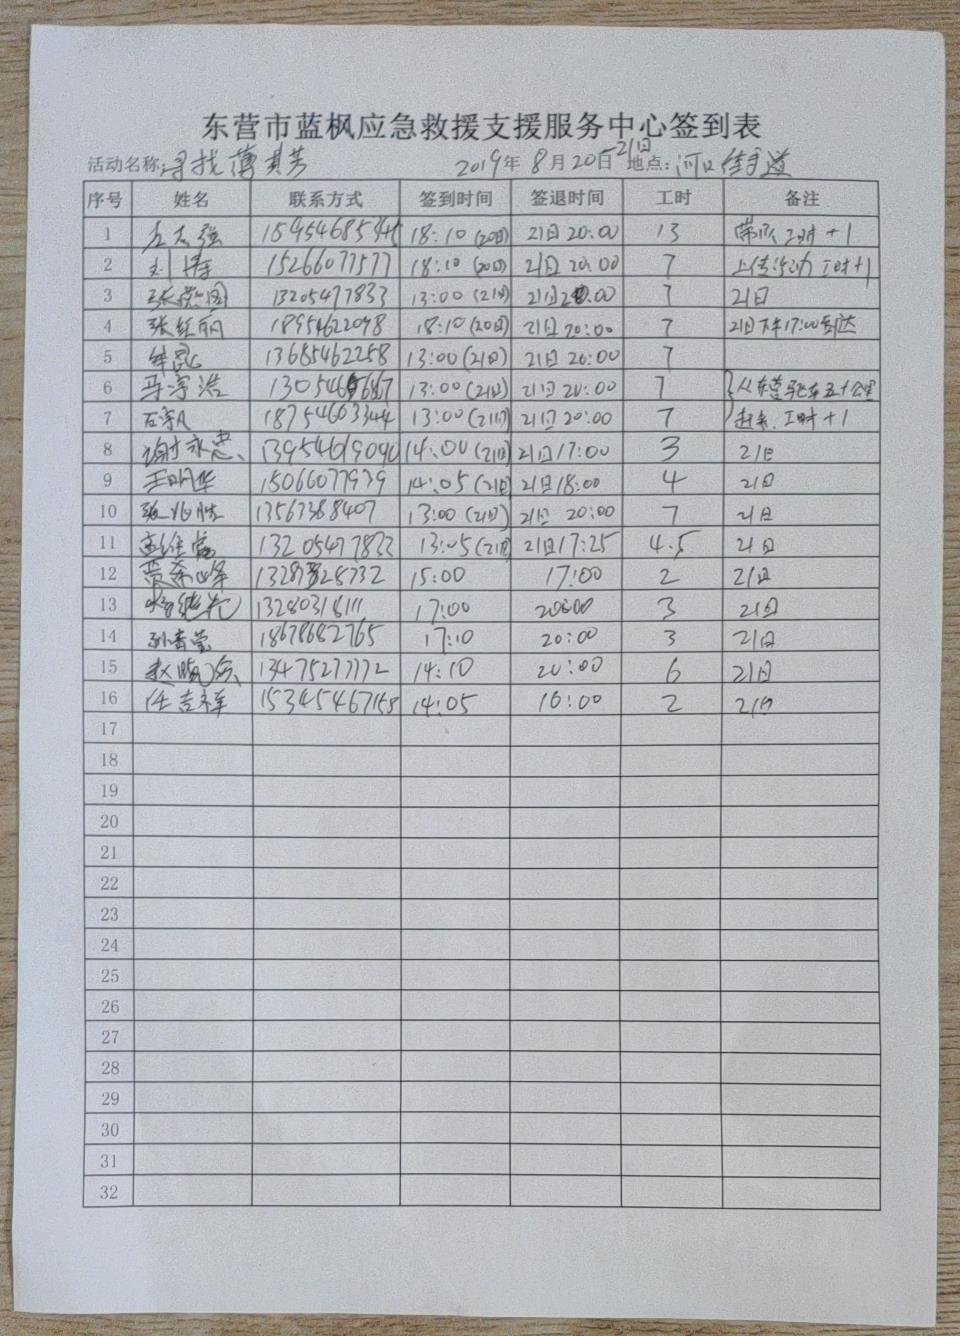 东营市蓝枫应急救援支援服务中心签到表
活动名称:寻找薄其芳 2019年8月20日-21日 地点:河口街道
序号 姓名 联系方式 签到时间 签退时间 工时 备注
1 左志强 18:10(20日) 21日20:00 13 带队工时+1
2 刘涛 15266077577 18:10(20日) 21日20:00 7 上传活动工时+1
3 13205477833 13:00(21日) 21日20:00 7 21日
4 张红丽 18954622098 18:10(20日) 21日20:00 7 21日下午17:00到达
5 13685462258 13:00(21日) 21日20:00 7
6 马宇浩 13:00(21日) 21日20:00 7 从东营驱车五十公里
7 18754603344 13:00(21日) 21日20:00 7 赶来,工时+1
8 谢永忠 13954619090 14:00(21日) 21日17:00 3 21日
9 王明华 15066077939 14:05(21日) 21日18:00 4 21日
10 张兆胜 13563368407 13:00(21日) 21日20:00 7 21日
11 13205477833 13:05(21日) 21日17:25 4.5 21日
12 15:00 17:00 2 21日
13 杨继光 13280318111 17:00 20:00 3 21日
14 孙青莹 18678682765 17:10 20:00 3 21日
15 13475277772 14:10 20:00 6 21日
16 任吉祥 15345467158 14:05 16:00 2 21日
17
18
19
20
21
22
23
24
25
26
27
28
29
30
31
32